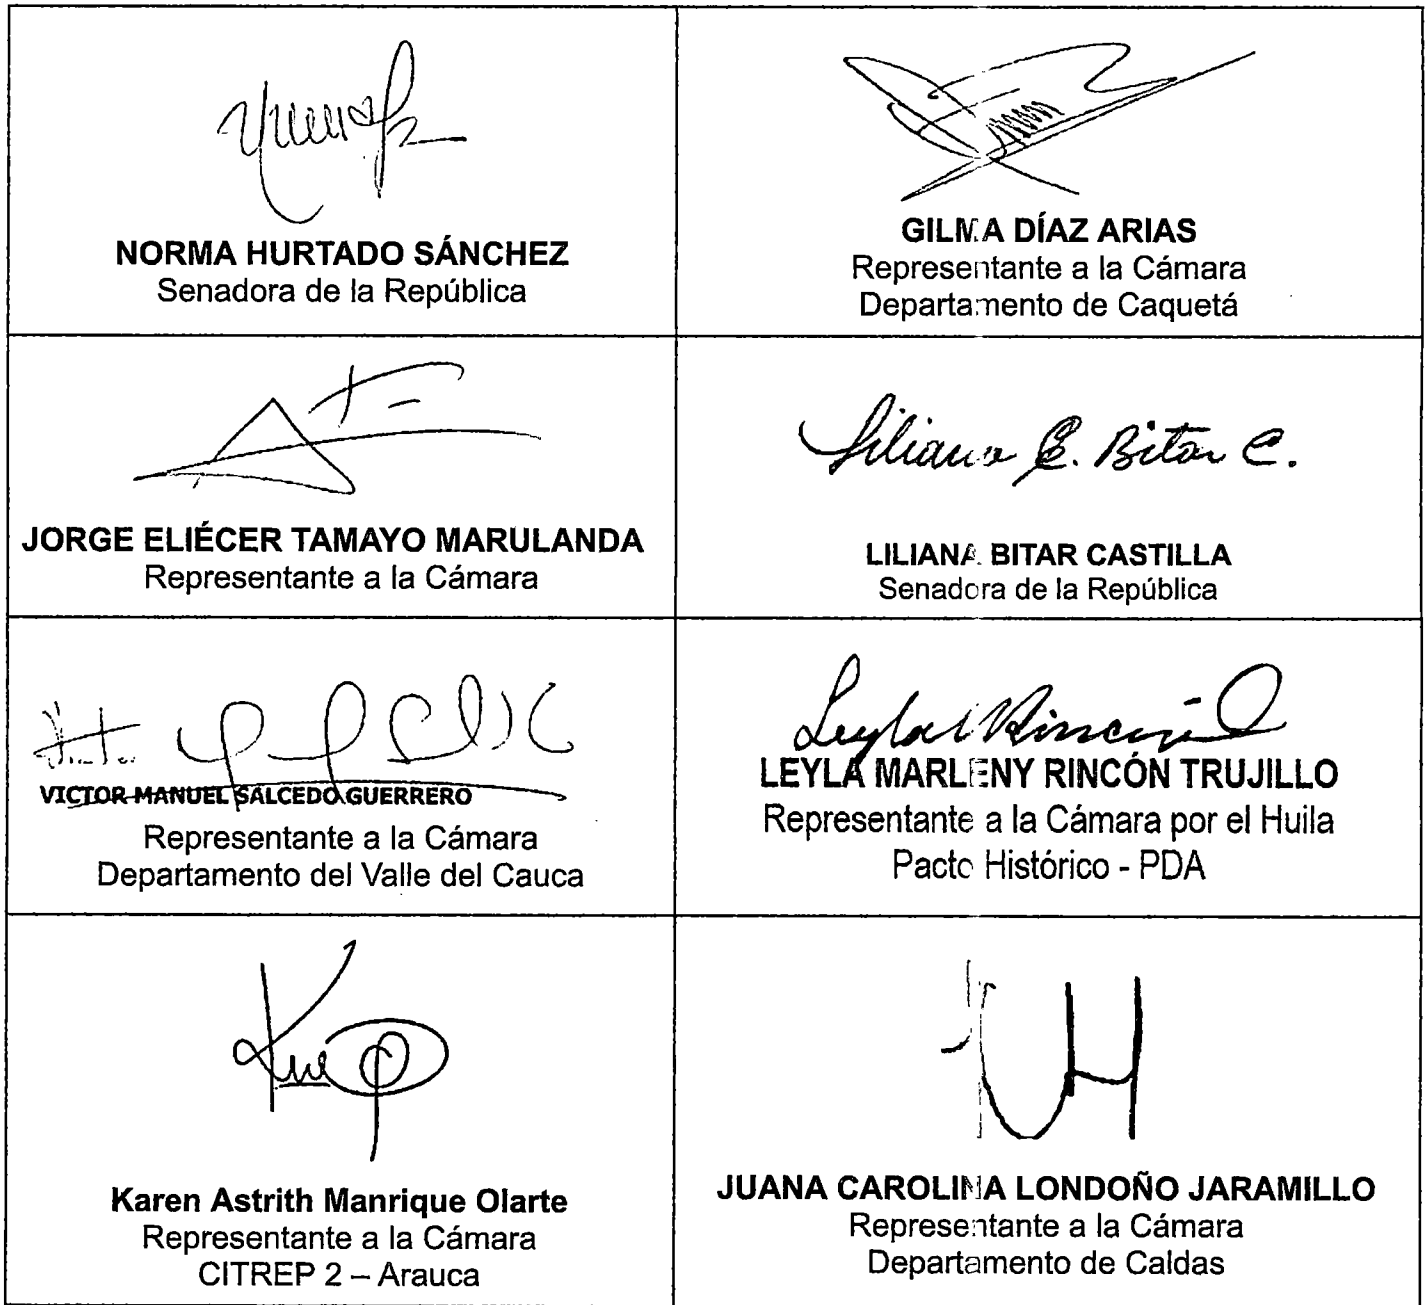 NORMA HURTADO SÁNCHEZ
Senadora de la República
GILMA DÍAZ ARIAS
Representante a la Cámara
Departamento de Caquetá
JORGE ELIÉCER TAMAYO MARULANDA
Representante a la Cámara
Liliana E. Bitar C.
LILIANA BITAR CASTILLA
Senadora de la República
Victor
VICTOR MANUEL SALCEDO GUERRERO
Representante a la Cámara
Departamento del Valle del Cauca
Leyla Rincón
LEYLA MARLENY RINCÓN TRUJILLO
Representante a la Cámara por el Huila
Pacto Histórico - PDA
Karen Astrith Manrique Olarte
Representante a la Cámara
CITREP 2 – Arauca
JUANA CAROLINA LONDOÑO JARAMILLO
Representante a la Cámara
Departamento de Caldas